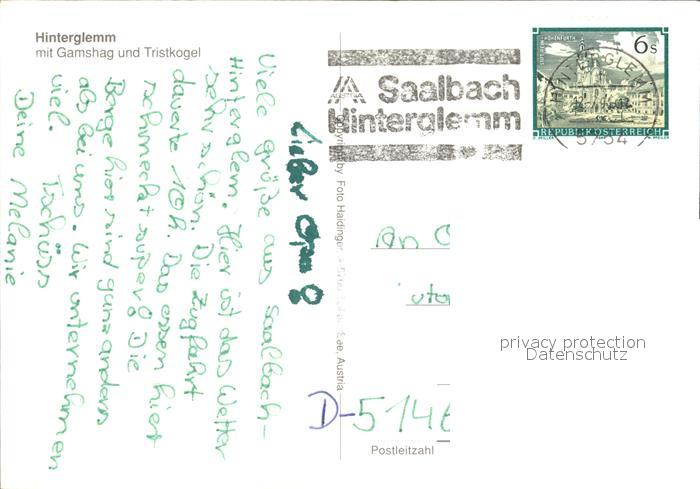 Hinterglemm
mit Gamshag und Tristkogel
AUSTRIA
Saalbach
Hinterglemm
HINTERGLEMM
5754
6s
REPUBLIK ÖSTERREICH
Lieber Opa!
Viele grüße aus Saalbach-
Hinterglem. Hier ist das Wetter
sehr schön. Die Zugfahrt
dauerte 10h. Das essen hier
schmeckt super! Die
Berge hier sind ganz anders
als bei uns. Wir unternehmen
viel. Tschüss
Deine Melanie
Copyright by Foto Haidinger, See, Austria
An O
D-5146
Postleitzahl
privacy protection
Datenschutz